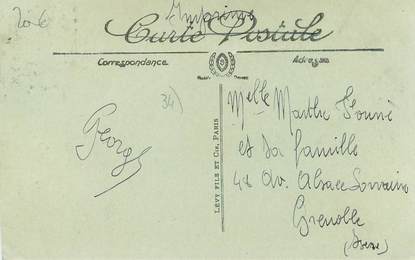 20 €
Imprimé
Carte Postale
Correspondance
Adresse
34)
Georges
LÉVY FILS ET Cie, PARIS
Melle Marthe
et sa famille
48 Av. Alsace Lorraine
Grenoble
(Isère)